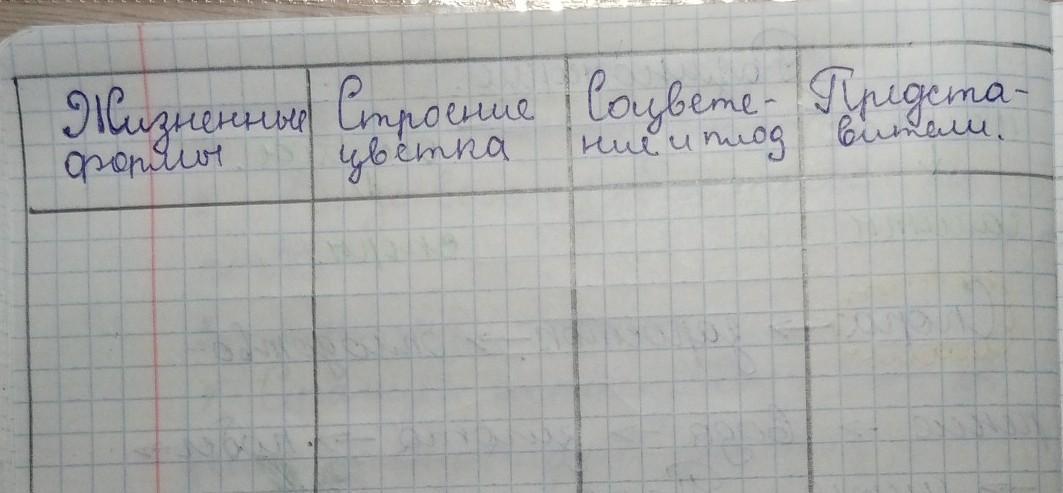 Жизненные
формы
Строение
цветка
Соцвете-
ние и плод
Предста-
вители.